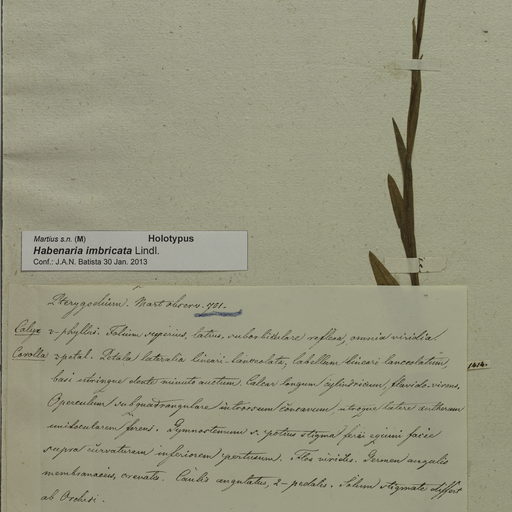 Martius s.n. (M) Holotypus
Habenaria imbricata Lindl.
Conf.: J.A.N. Batista 30 Jan. 2013
Pterygodium. Mart. observ. 921.
Calyx 2-phyllus. Folium superius, latius, suborbiculare reflexa, omnia viridia.
Corolla 2 petal. Petala lateralia lineari-lanceolata, labellum lineari lanceolatum,
basi utrinque dente minuto auctum. Calcar longum cylindricum, flavido-virens.
Operculum subquadrangulare introrsum concavum utroque latere antheram
unilocularem ferens. Gymnostemum s. potius stigma ferè apicis facie
supra curvaturam inferiorem pertusum. Flos viridis. Germen angulis
membranaceis, crenatis. Caulis angulatus, 2-pedalis. Solum stigmate differt
ab Orchidi.
1414.